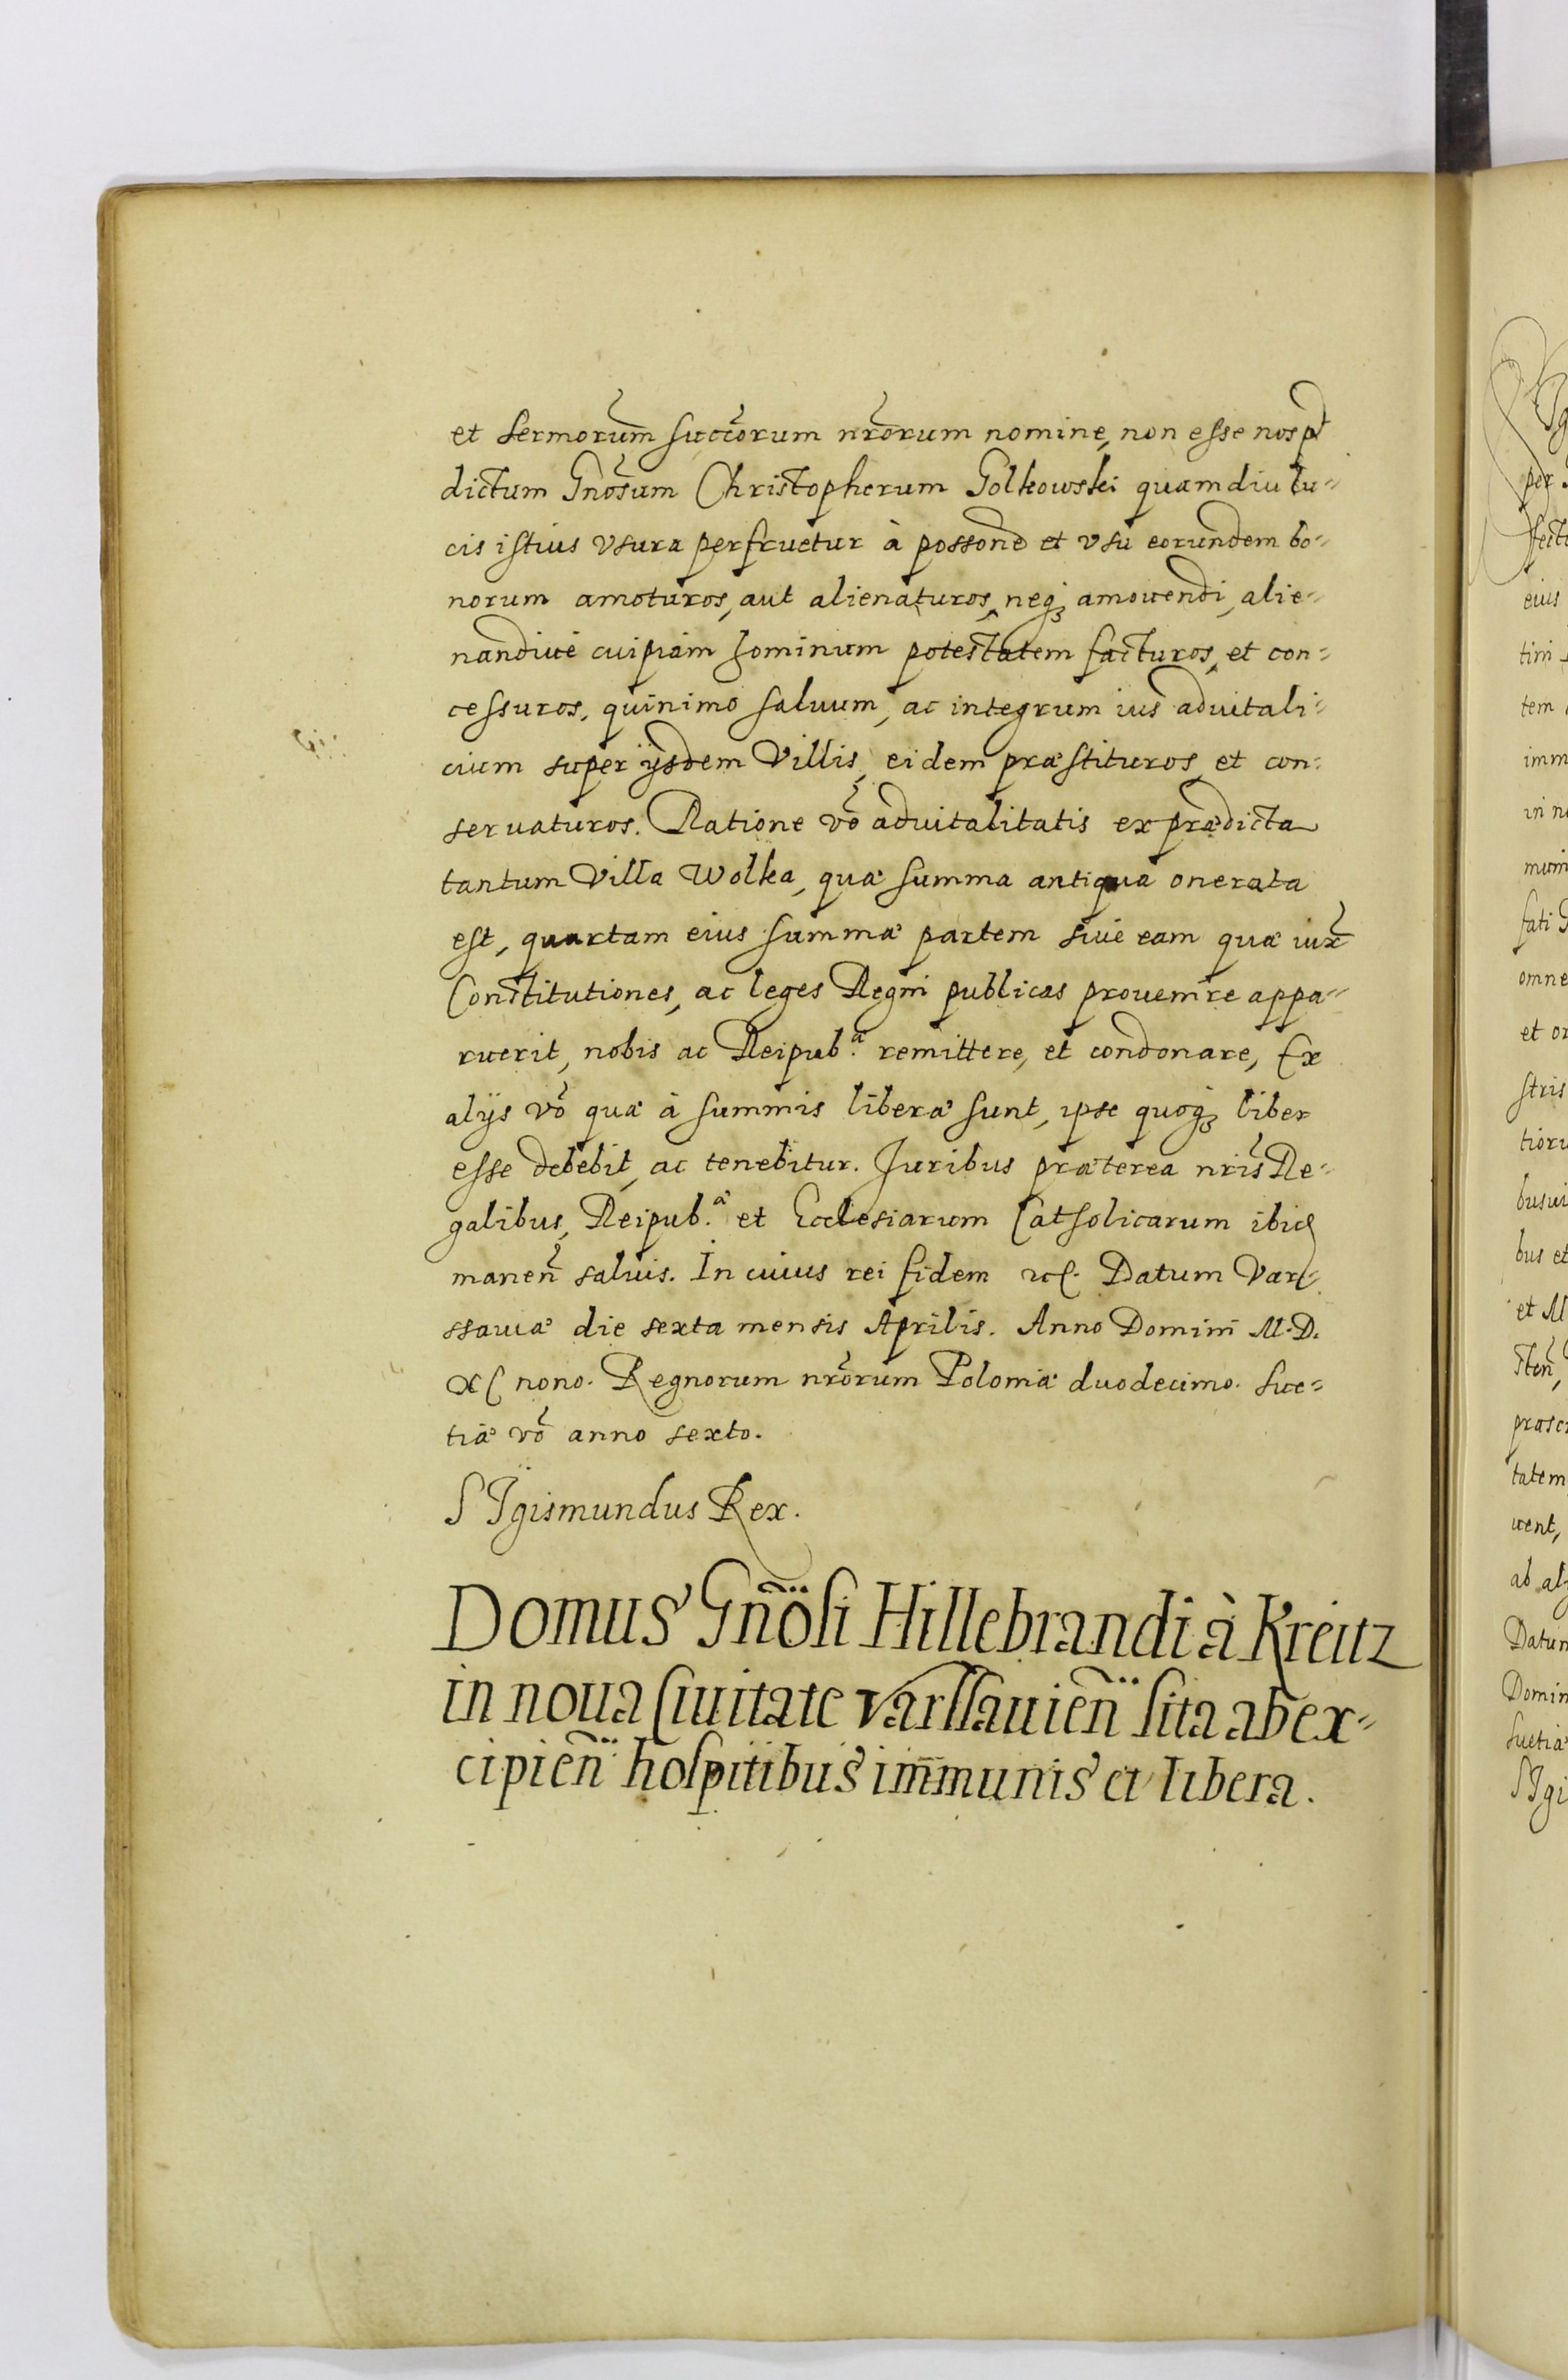 et Sermorum̃ succ̃orum nr̃orum nomine, non esse nos p̃
dictum Gnõsum Christopherum Golkowski quamdiu lu-
cis istius vsura perfruetur à possone et vsu eorundem bo-
norum amoturos, aut alienaturos, neqꝫ amouendi, alie-
nandiue cuipiam hominum potestatem facturos, et con-
cessuros, quinimo saluum, ac integrum ius aduitali-
cium super ijsdem Villis, eidem præstituros, et con-
seruaturos. Ratione võ aduitalitatis ex prædicta
tantum Villa Wolka, quæ summa antiqua onerata
est, quartam eius summæ partem siue eam quæ iux̃
Constitutiones, ac leges Regni publicas prouenire appa-
ruerit, nobis ac Reipub.æ remittere, et condonare, Ex
alijs võ quæ à summis liberæ sunt, ipse quoqꝫ liber
esse debebit, ac tenebitur. Juribus præterea nr̃is Re-
galibus, Reipub.æ et Ecclesiarum Catholicarum ibid
manen̄ saluis. In cuius rei fidem etc. Datum Var-
ssauiæ die sexta mensis Aprilis. Anno Domini M.D.
XC nono. Regnorum nr̃orum Poloniæ duodecimo. Sue-
tiæ võ anno sexto.
SIgismundus Rex.
Domus Gnõsi Hillebrandi à Kreitz
in noua Ciuitate Varssauien̄ sita ab ex-
cipien̄ hospitibus im̄munis et libera.